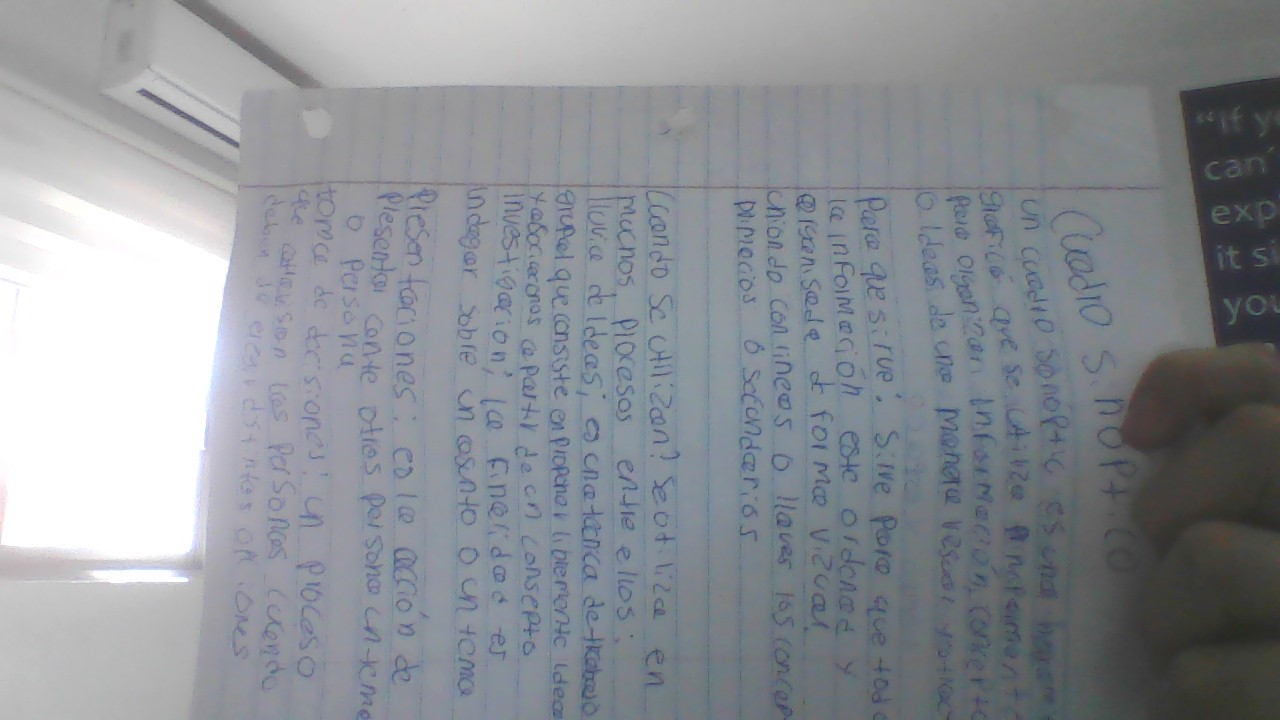 Cuadro Sinoptico
un cuadro sinoptic es una
grafica que se utiliza Ampliament
para organizar informacion, concept
o ideas de una manera
para que sirve: Sirve para que tod
la informacion este ordenad y
organisada d forma vizual
uniendo con lineas o llaves los concep
primarios o secundarios
Cuando se utilizan? se utiliza en
muchos procesos entre ellos:
lluvia de Ideas; es una tecnica de trabajo
grupal que consiste en proponer libremente ideas
y asociaciones a partir de un consepto
investigacion; la finalidad es
indagar sobre un asunto o un tema
Presentaciones: es la acción de
presentar conte otras persona un tema
o persona
toma de decisiones; un proceso
que las personas cuando
deben distintos opciones
"If yo
can'
exp
it si
you